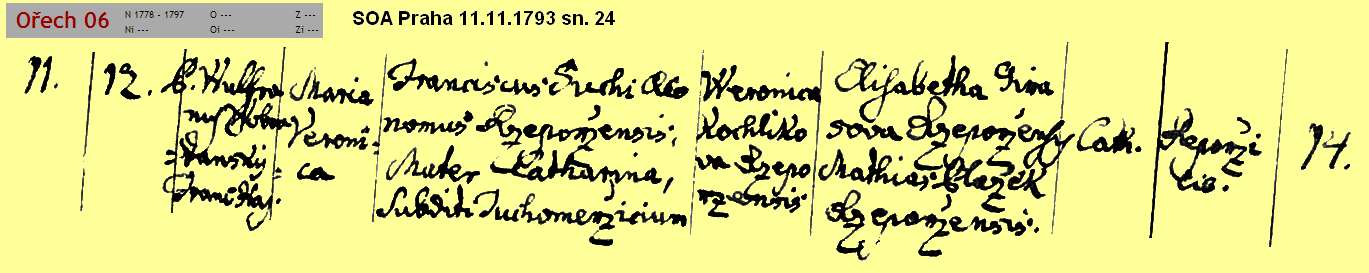 Ořech 06
N 1778 - 1797 O --- Z ---
Ni --- Oi --- Zi ---
SOA Praha 11.11.1793 sn. 24
11.
12.
P. Wulfra
Maria
Veroni=
ca
Franciscus Suchi Oeco
nomus Rzeporzensis,
Mater Catharina,
Subditi Tuchomerzicium
Weronica
Kochliko
va Rzepo
rzensis
Elisabetha
sova Rzeporzensis
Mathias Blažek
Rzeporzensis.
Cath.
Reporži
cis.
14.